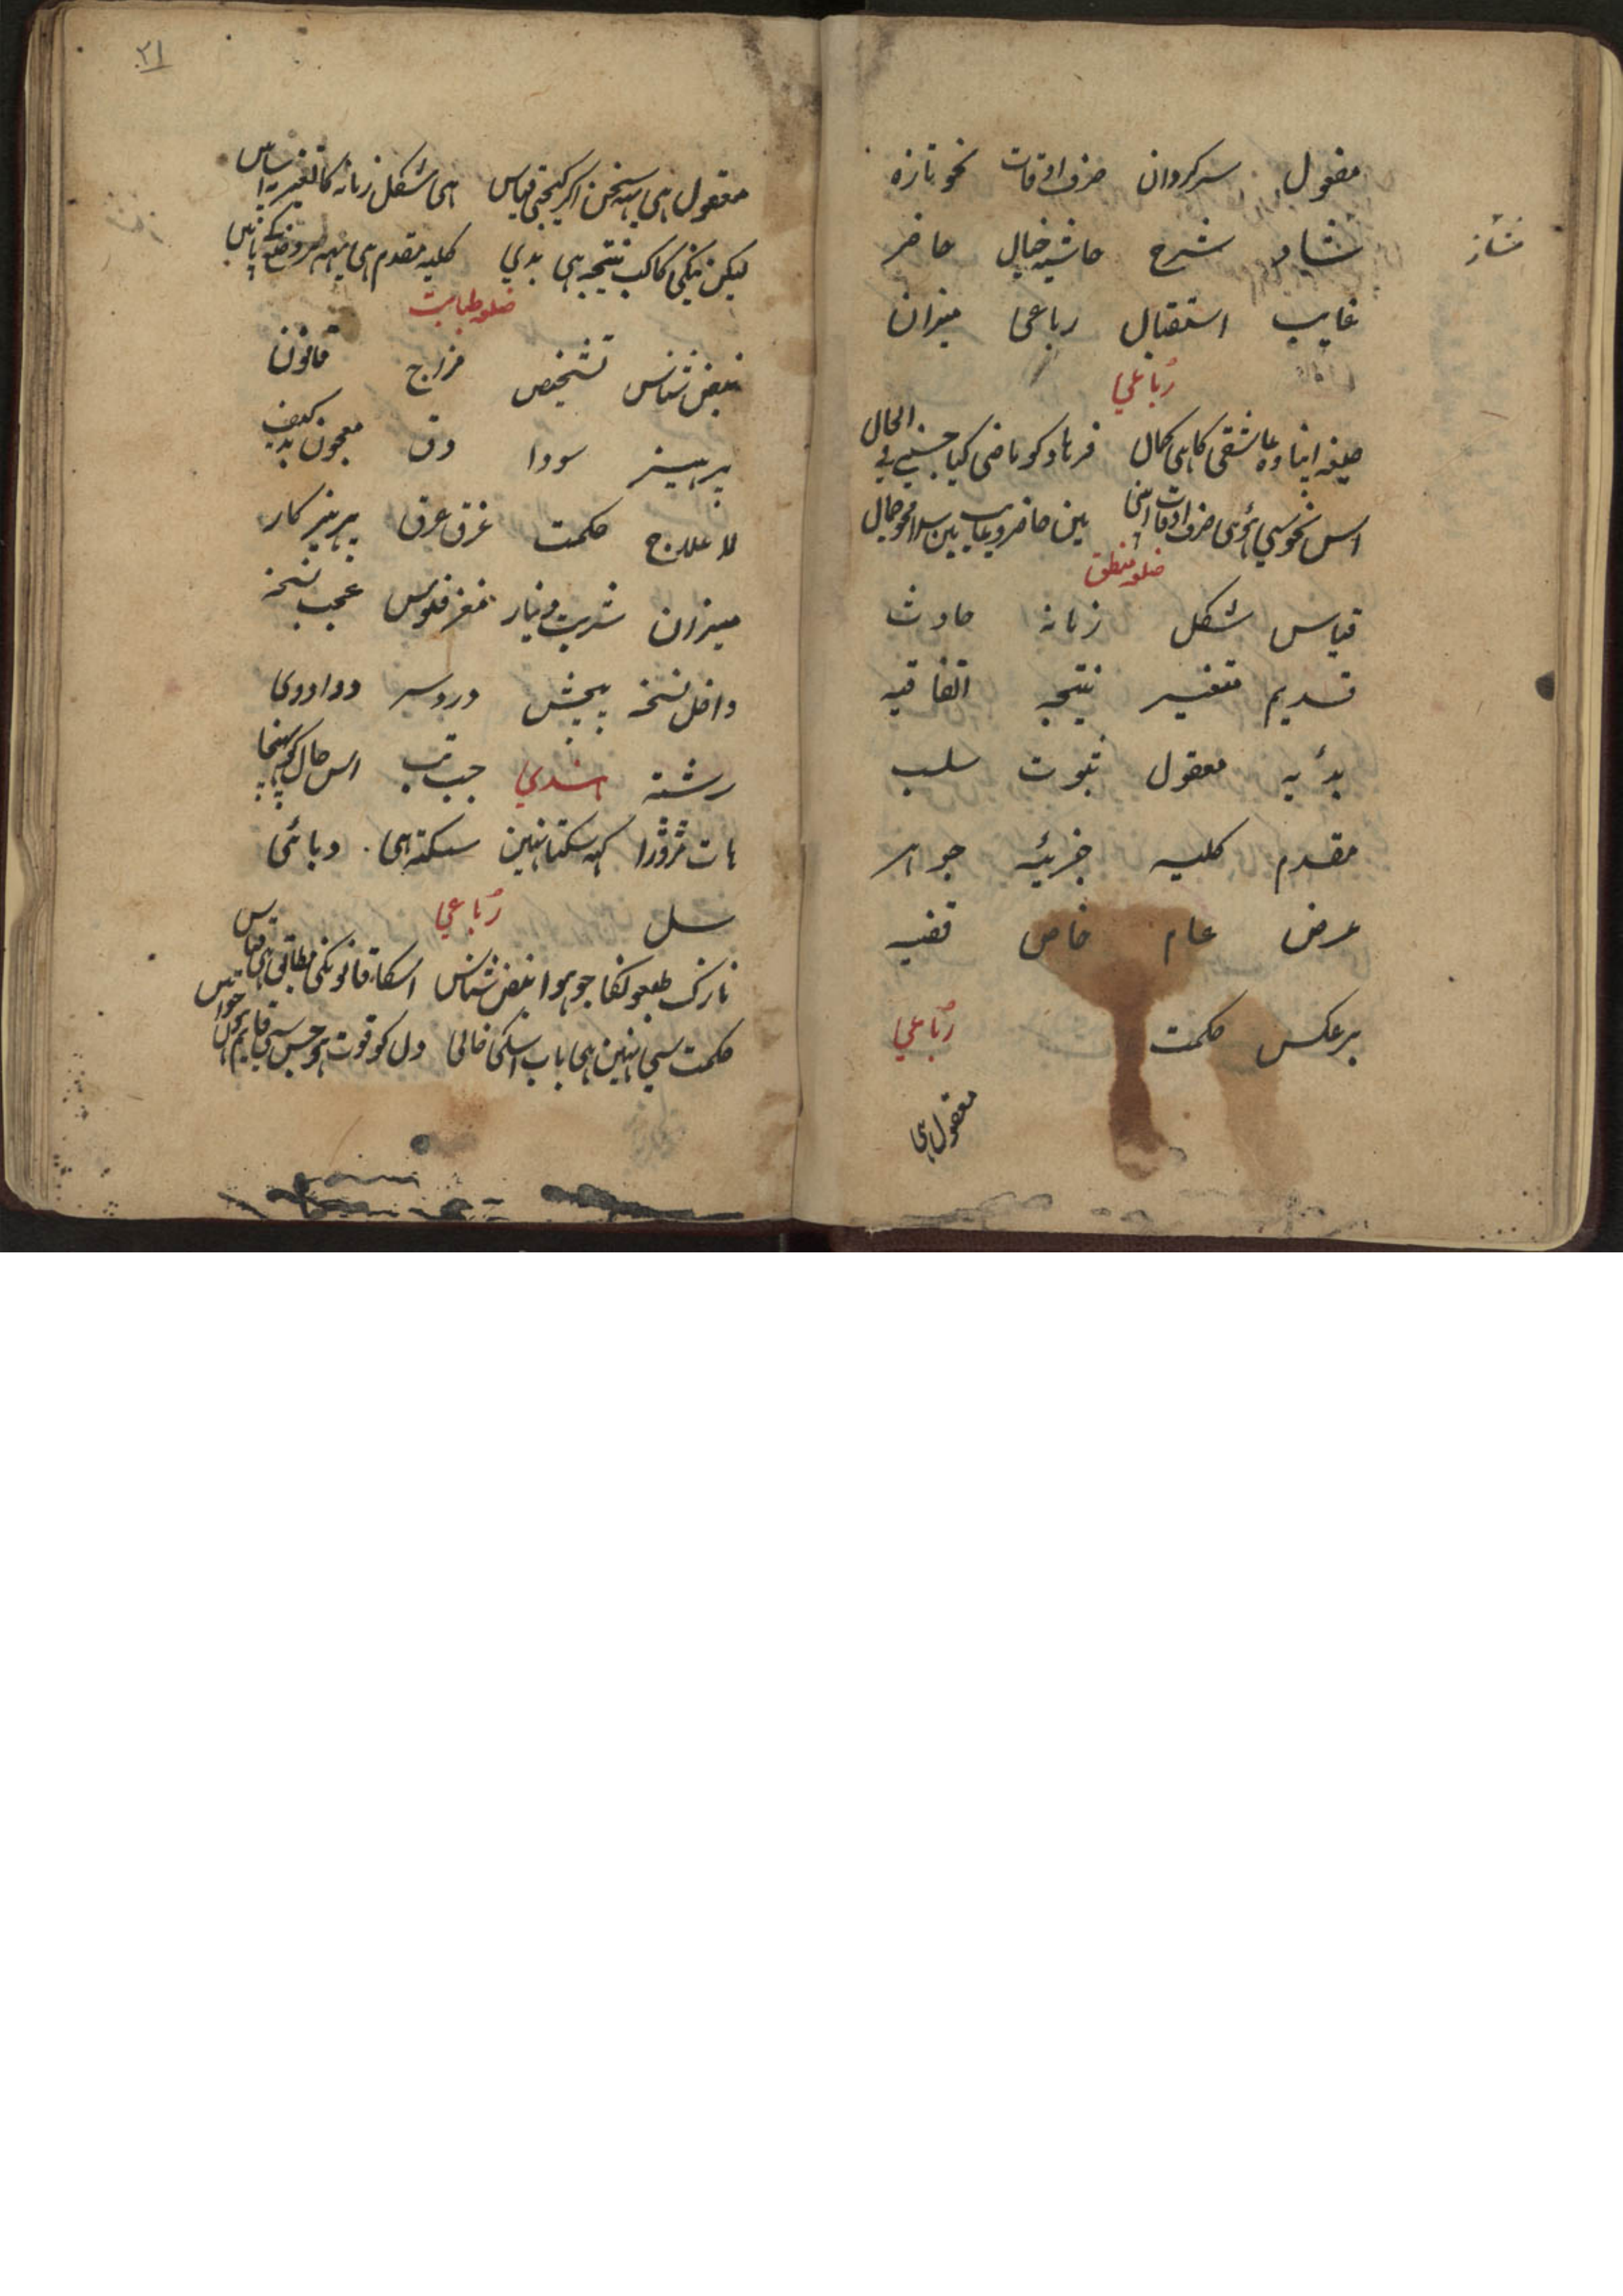 مفعول سرکردان صرف اوقات نحو تازه
شاد شرح حاشیہ خیال حاضر
غایب استقبال رباعی میزان
رباعي
صیغہ اپنا وہ عاشقی کا ہی کمال فرہاد کو ماضی کیا جسنی فی الحال
اس نحو سی ہوئی صرف اوقات اپنی ہین حاضر و غایب ہین
ضلع منطق
قیاس شکل زمانہ حادث
قدیم متغیر نتیجہ اتفاقیہ
معقول ثبوت سلب
مقدم کلیہ جزئیہ جوہر
عرض عام خاص قضیہ
برعکس حکمت رباعي
معقول ہی
۲۱
معقول ہی یہہ سخن اکر کیجئی قیاس ہی شکل زمانہ کا تغیر پہ اساس
لیکن نیکی کا کب نتیجہ ہی بدي کلیہ مقدم ہی یہہ
ضلع طبابت
نبض شناس تشخیص مزاج قانون
پرہیز سودا دق معجون بد کیف
لا علاج حکمت غرق عرق پرہیز کار
میزان شربت دینار مغز فلوس عجب نسخہ
داخل نسخہ پیچش دردسر دوا دوی
رشتہ جب تب اس حال کو پہنچا
ہات مڑوڑا کہہ سکتا نہین سکتہ ہی وبائی
سل رباعي
نازک طبعونکا جو ہوا نبض شناس اسکا قانونکی مطابق ہی قیاس
حکمت سی نہین ہی بات اسکی خالی دل کو قوت ہو جس سی قایم ہون حواس